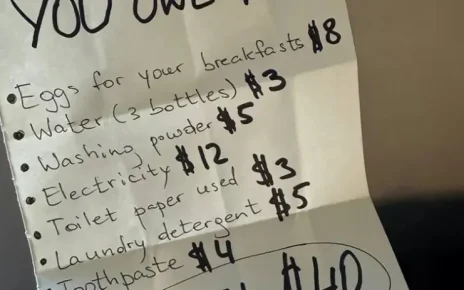 YOU OWE
• Eggs for your breakfasts $8
• Water (3 bottles) $3
• Washing powder $5
• Electricity $12
• Toilet paper used $3
• Laundry detergent $5
• Toothpaste $4
$40